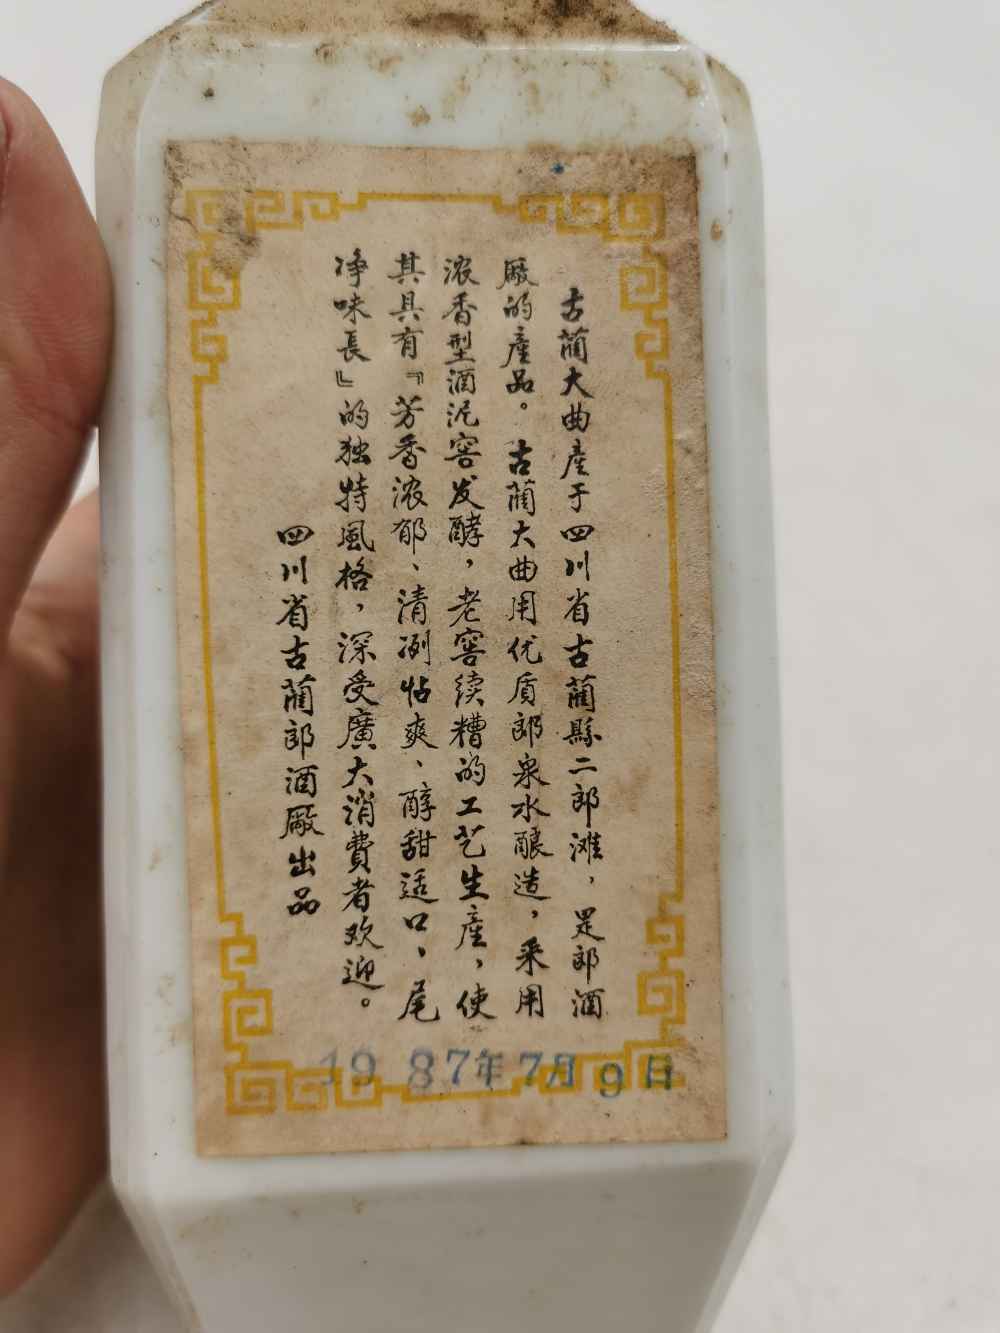 古蔺大曲産于四川省古蔺縣二郎滩，是郎酒
廠的産品。古蔺大曲用优质郎泉水酿造，采用
浓香型酒泥窖发酵，老窖续糟的工艺生産，使
其具有『芳香浓郁、清冽怗爽、醇甜适口、尾
净味長』的独特風格，深受廣大消費者欢迎。
四川省古蔺郎酒廠出品
1987年7月9日